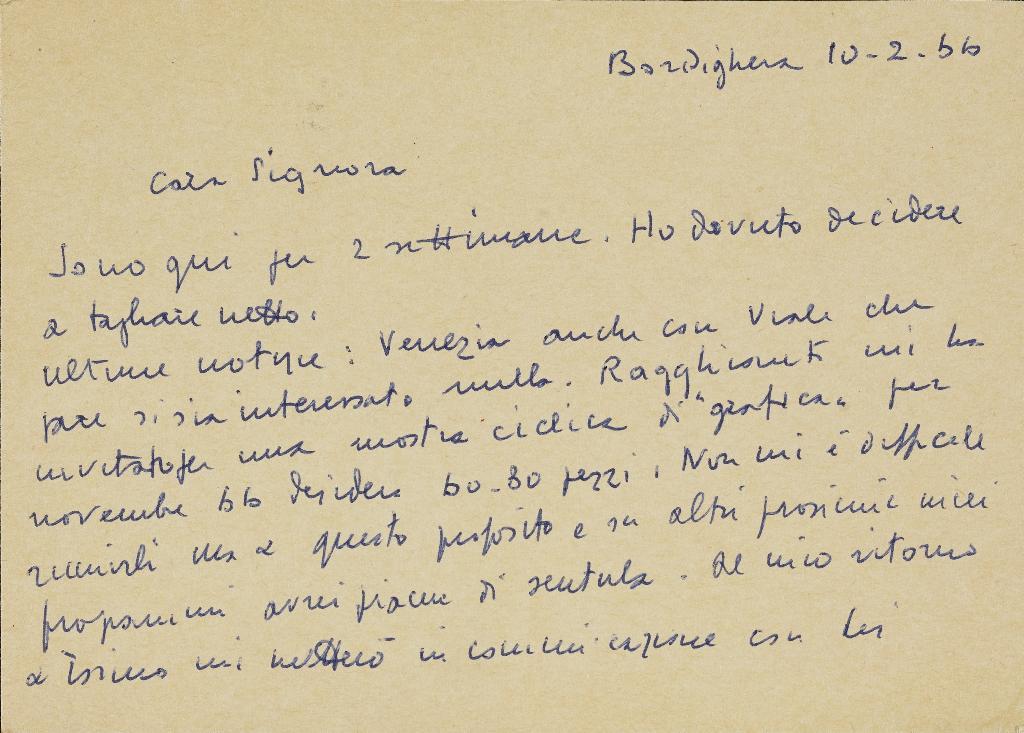 Bordighera 10-2-66
Cara Signora
Sono qui per 2 settimane. Ho dovuto decidere
a tagliare netto.
ultime notizie: Venezia anche con Viale che
pare si sia interessato nulla. Ragghianti mi ha
invitato per una mostra ciclica di "grafica" per
novembre 66 desidera 60-80 pezzi. Non mi è difficile
riunirli ma a questo proposito e su altri prossimi miei
programmi avrei piacere di sentirla. Al mio ritorno
a Torino mi metterò in comunicazione con Lei